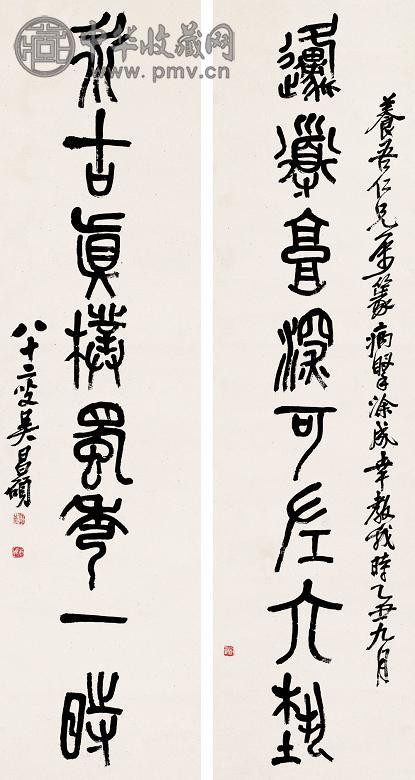 中华收藏网
www.pmv.cn
養吾仁兄索篆病臂涂成幸教我時乙丑九月
邍導高深可左六埶
永古真樸蜀秀一時
八十二叟吳昌碩